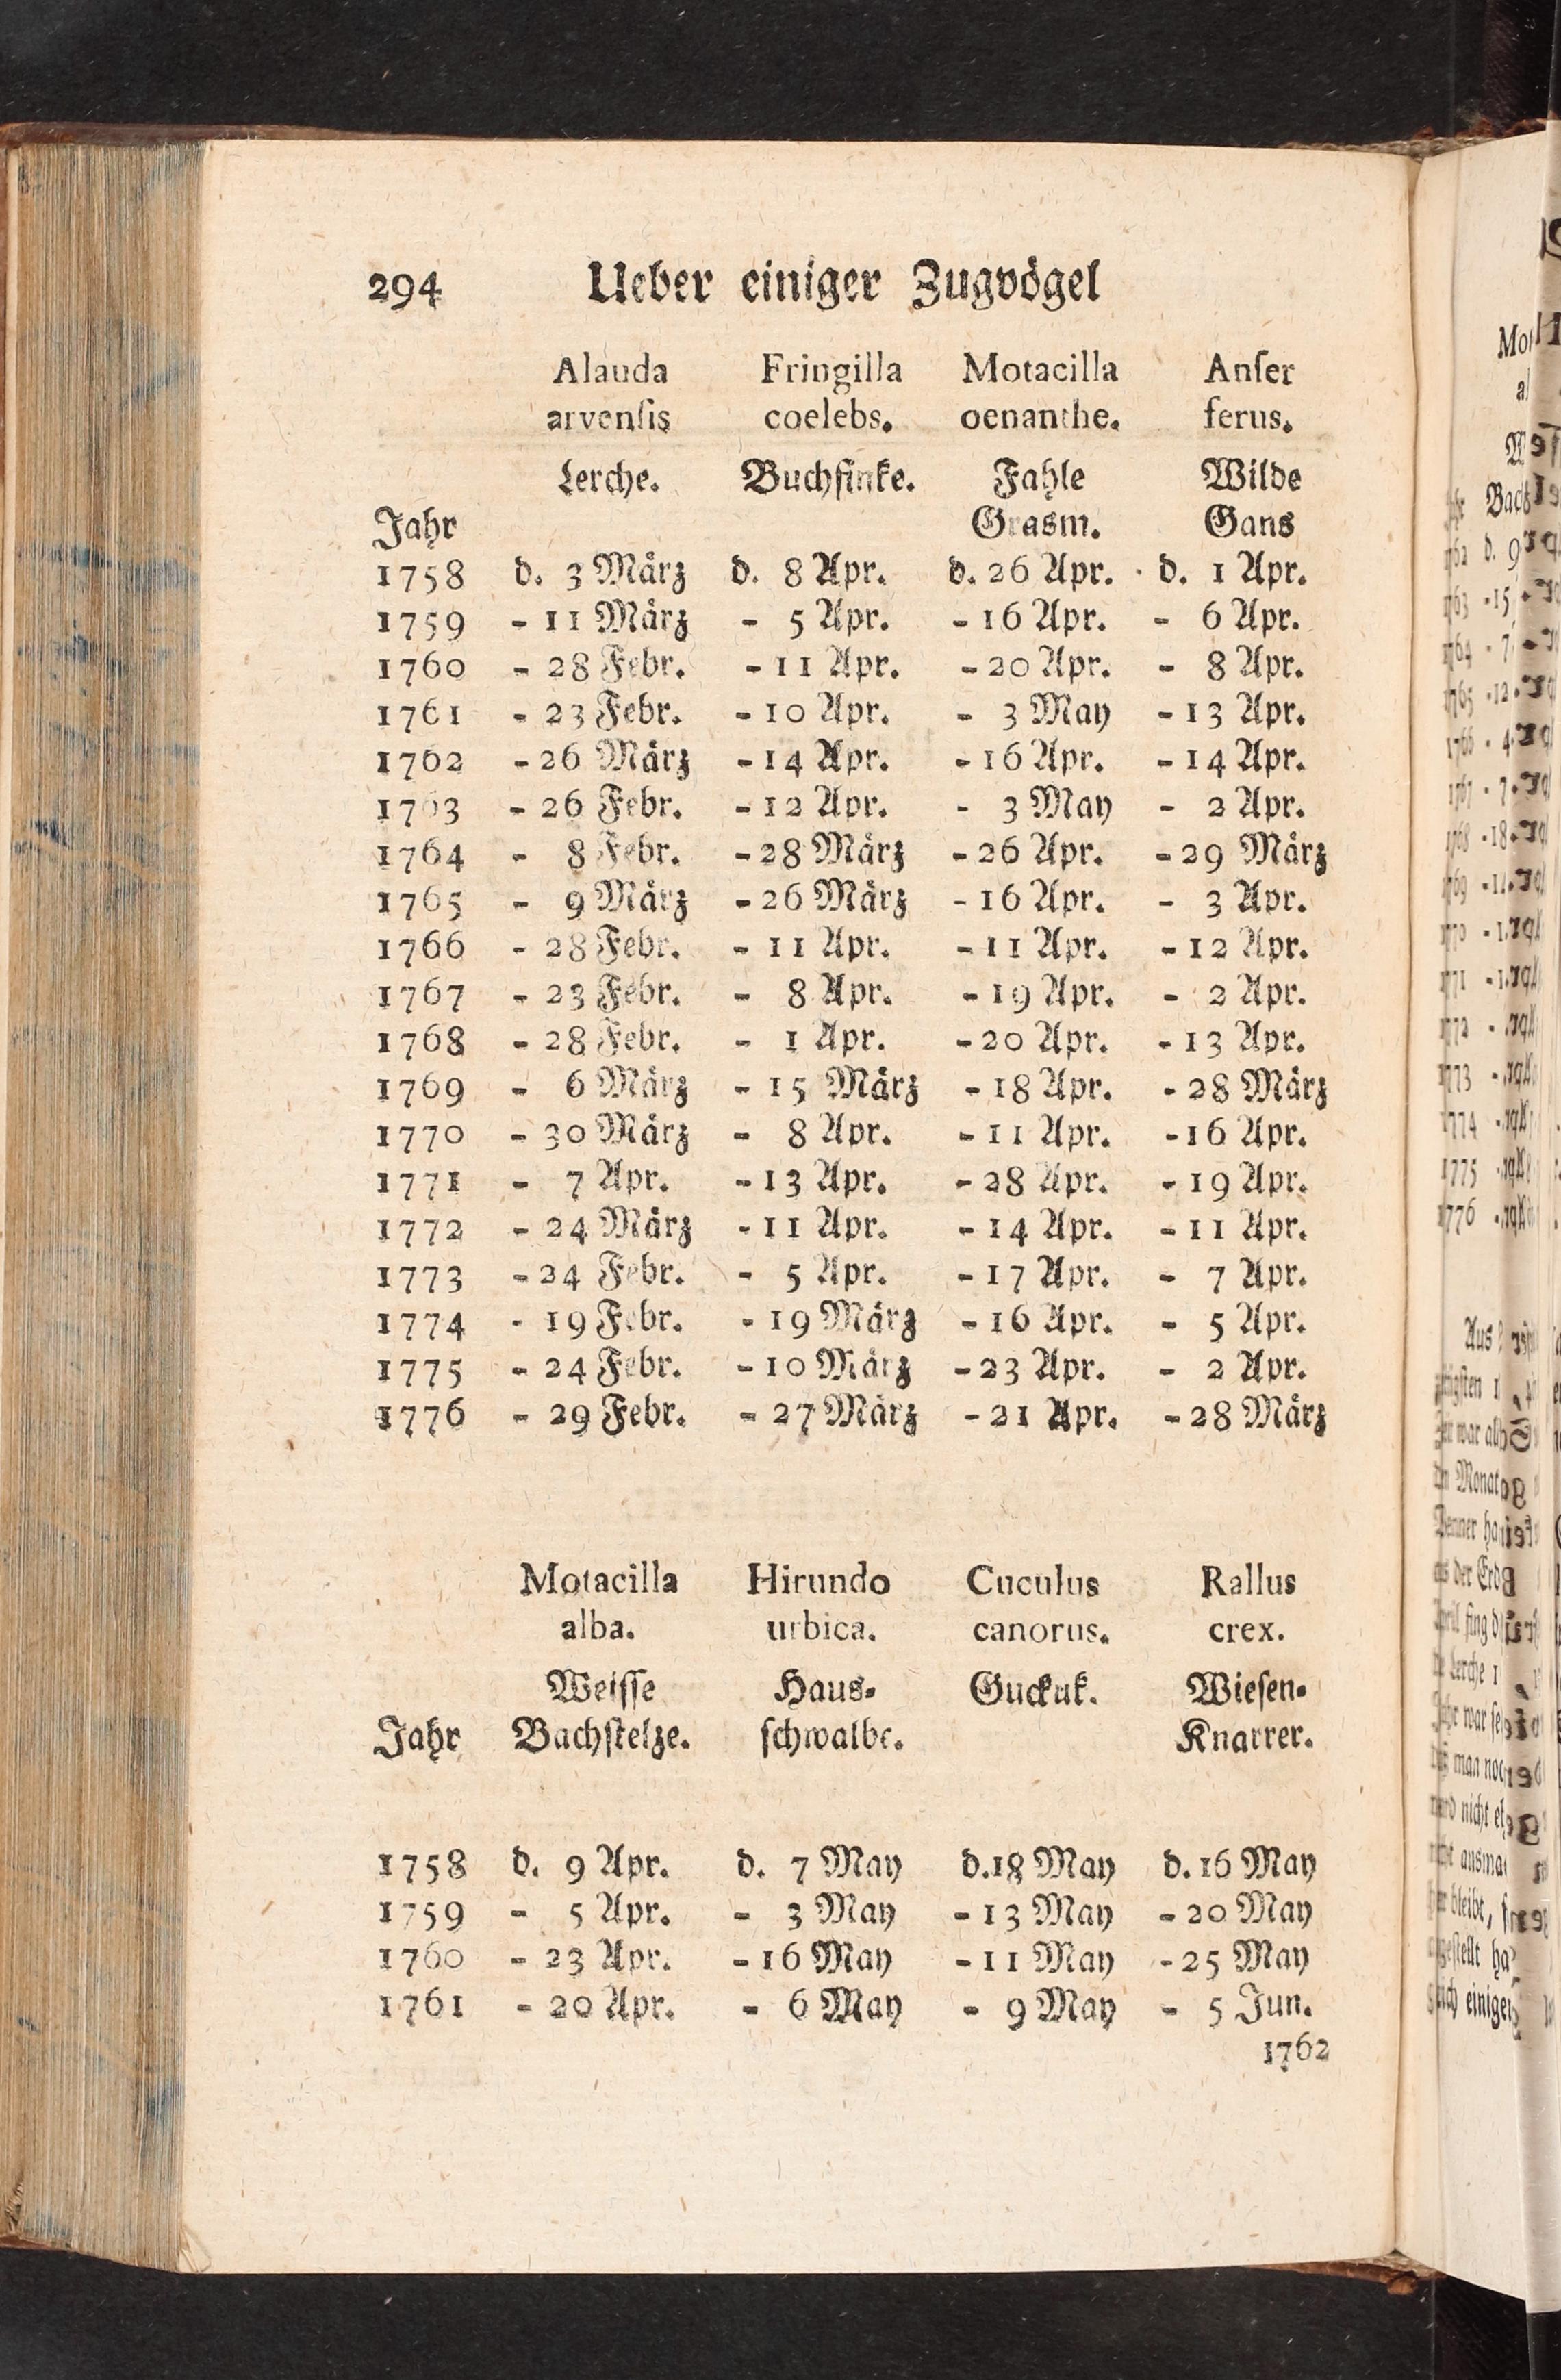 294 Ueber einiger Zugvögel
Alauda Fringilla Motacilla Anſer
arvenſis coelebs. oenanthe. ferus.
Lerche. Buchfinke. Fahle Wilde
Jahr Grasm. Gans
1758 d. 3 März d. 8 Apr. d. 26 Apr. d. 1 Apr.
1759 - 11 März - 5 Apr. - 16 Apr. - 6 Apr.
1760 - 28 Febr. - 11 Apr. - 20 Apr. - 8 Apr.
1761 - 23 Febr. - 10 Apr. - 3 May - 13 Apr.
1762 - 26 März - 14 Apr. - 16 Apr. - 14 Apr.
1763 - 26 Febr. - 12 Apr. - 3 May - 2 Apr.
1764 - 8 Febr. - 28 März - 26 Apr. - 29 März
1765 - 9 März - 26 März - 16 Apr. - 3 Apr.
1766 - 28 Febr. - 11 Apr. - 11 Apr. - 12 Apr.
1767 - 23 Febr. - 8 Apr. - 19 Apr. - 2 Apr.
1768 - 28 Febr. - 1 Apr. - 20 Apr. - 13 Apr.
1769 - 6 März - 15 März - 18 Apr. - 28 März
1770 - 30 März - 8 Apr. - 11 Apr. - 16 Apr.
1771 - 7 Apr. - 13 Apr. - 28 Apr. - 19 Apr.
1772 - 24 März - 11 Apr. - 14 Apr. - 11 Apr.
1773 - 24 Febr. - 5 Apr. - 17 Apr. - 7 Apr.
1774 - 19 Febr. - 19 März - 16 Apr. - 5 Apr.
1775 - 24 Febr. - 10 März - 23 Apr. - 2 Apr.
1776 - 29 Febr. - 27 März - 21 Apr. - 28 März
Motacilla Hirundo Cuculus Rallus
alba. urbica. canorus. crex.
Weiſſe Haus- Guckuk. Wieſen-
Jahr Bachſtelze. ſchwalbe. Knarrer.
1758 d. 9 Apr. d. 7 May d. 18 May d. 16 May
1759 - 5 Apr. - 3 May - 13 May - 20 May
1760 - 23 Apr. - 16 May - 11 May - 25 May
1761 - 20 Apr. - 6 May - 9 May - 5 Jun.
1762